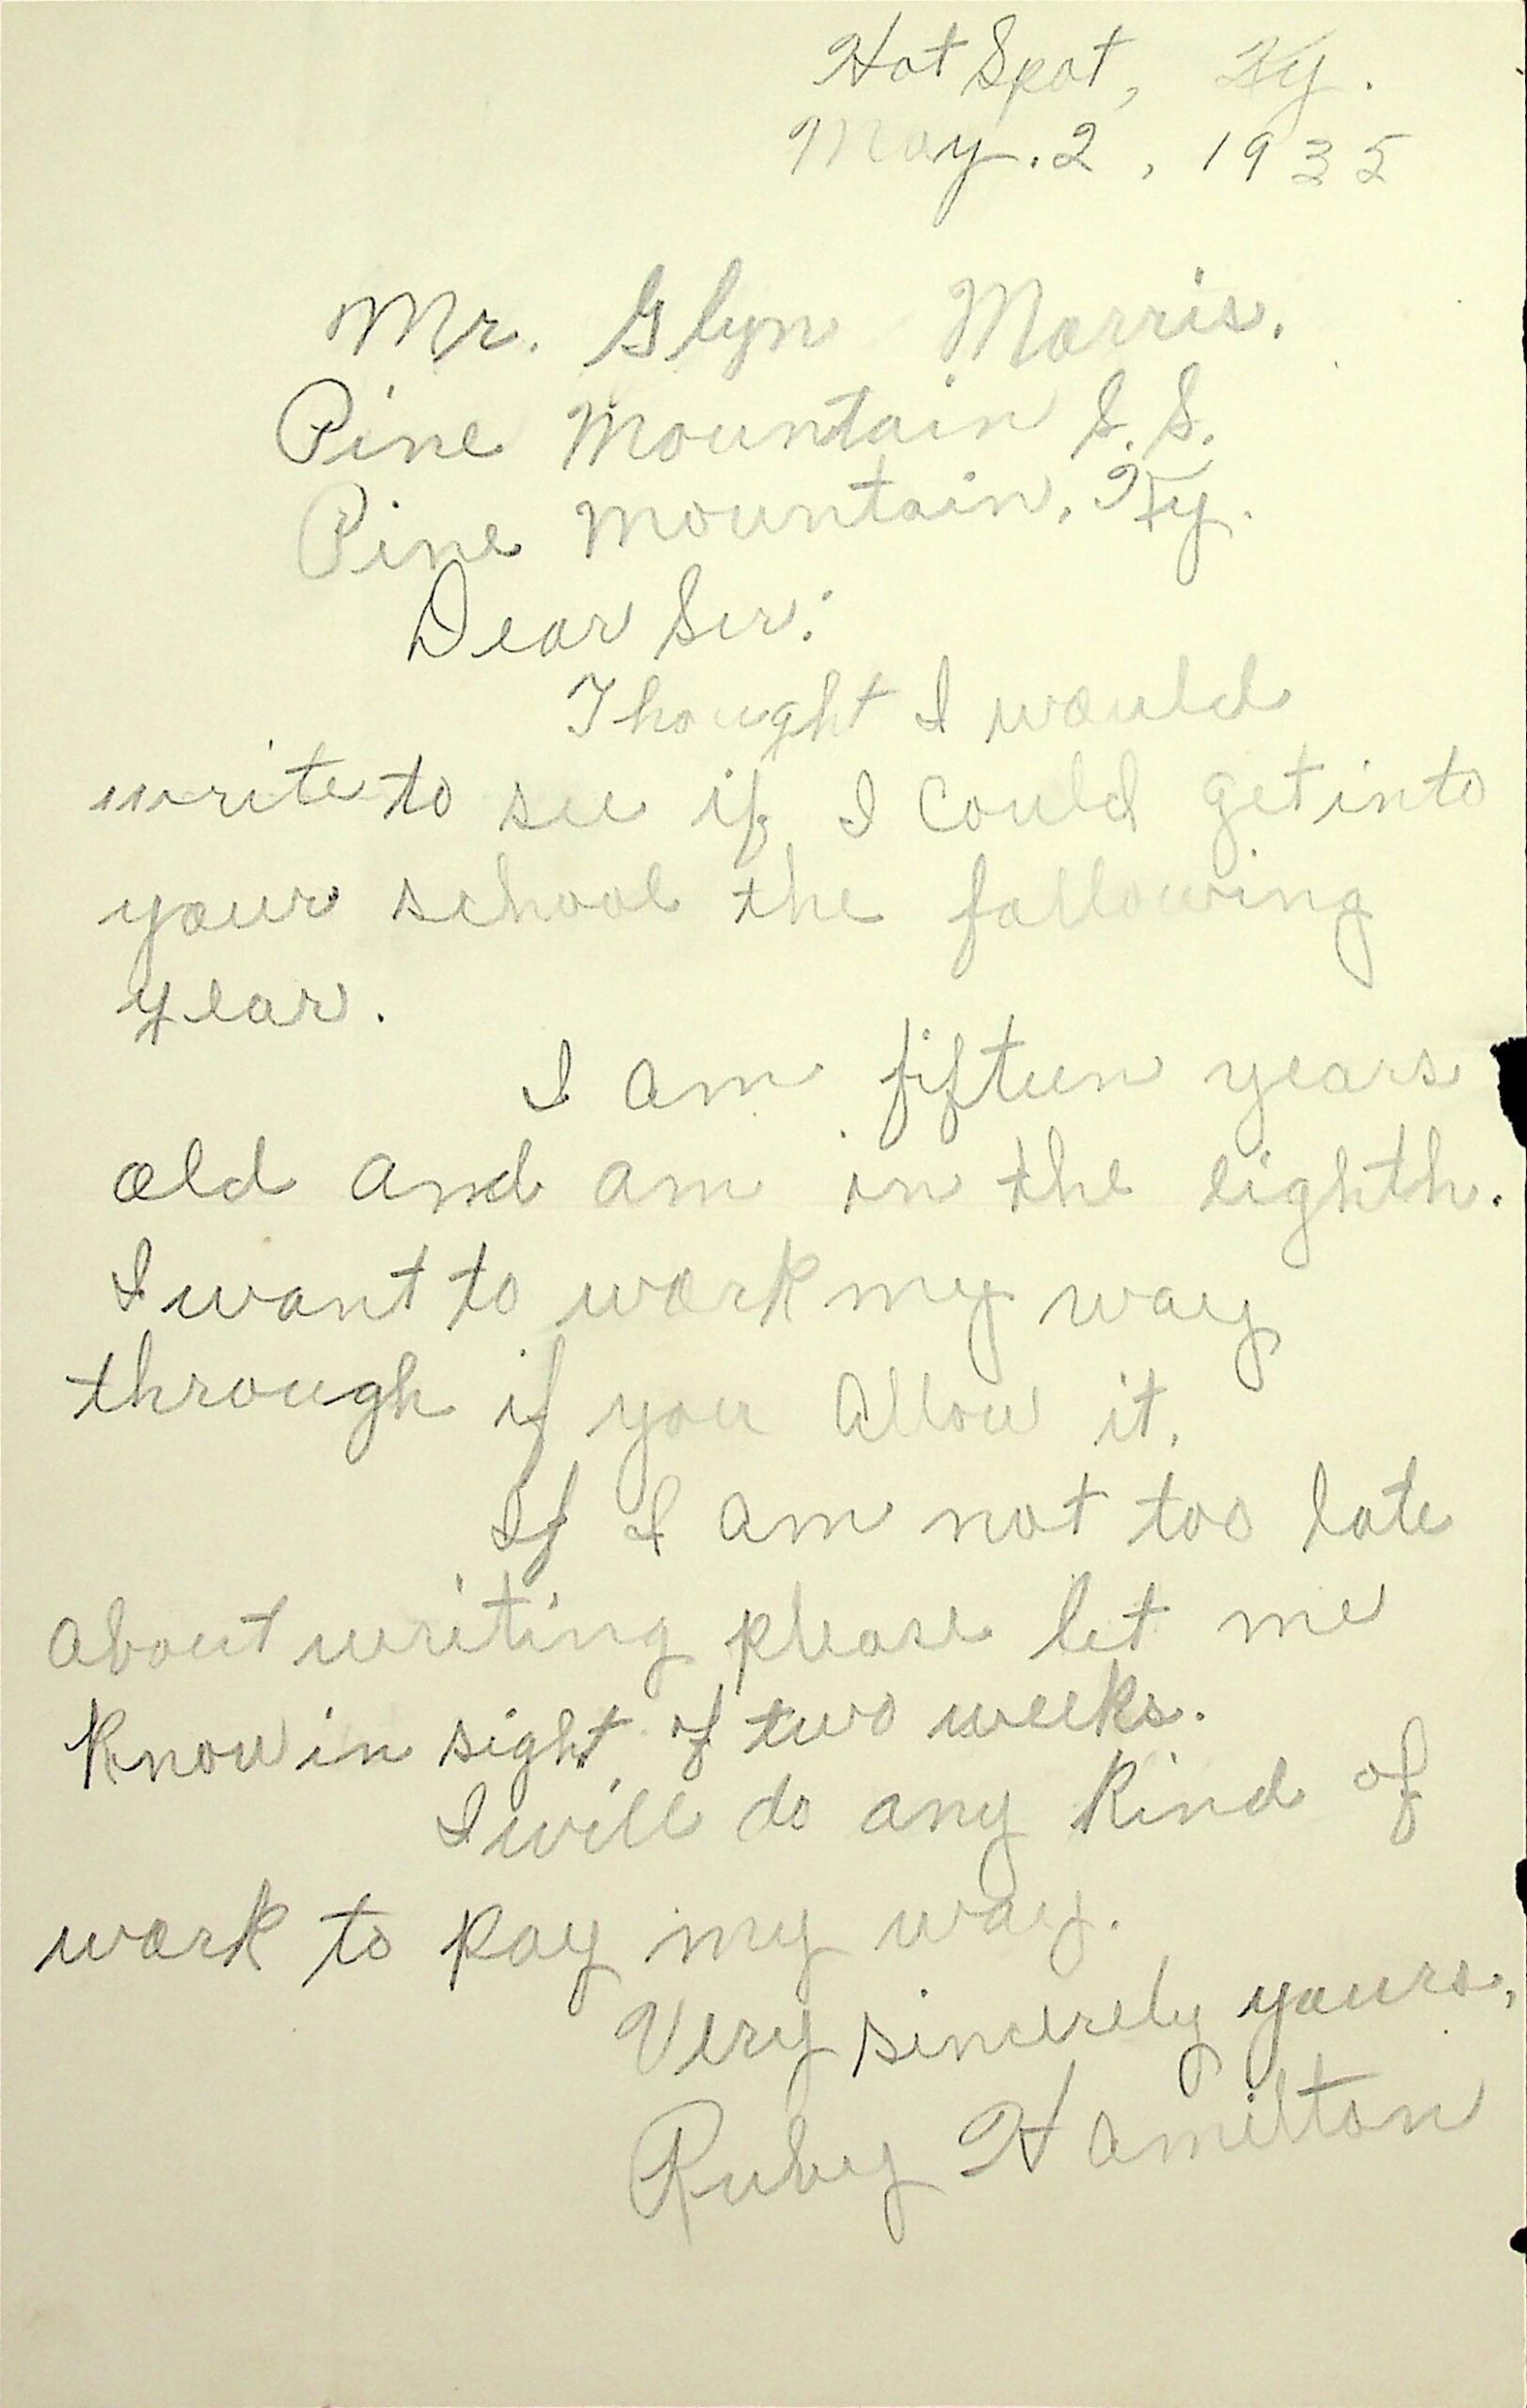 Hot Spot, Ky.
May. 2, 1935
Mr. Glyn Morris.
Pine Mountain S. S.
Pine Mountain, Ky.
Dear Sir:
Thought I would
write to see if I could get into
your school the following
year.
I am fifteen years
old and am in the eighth.
I want to work my way
through if you allow it.
If I am not too late
about writing please let me
know in sight of two weeks.
I will do any kind of
work to pay my way.
Very sincerely yours,
Ruby Hamilton